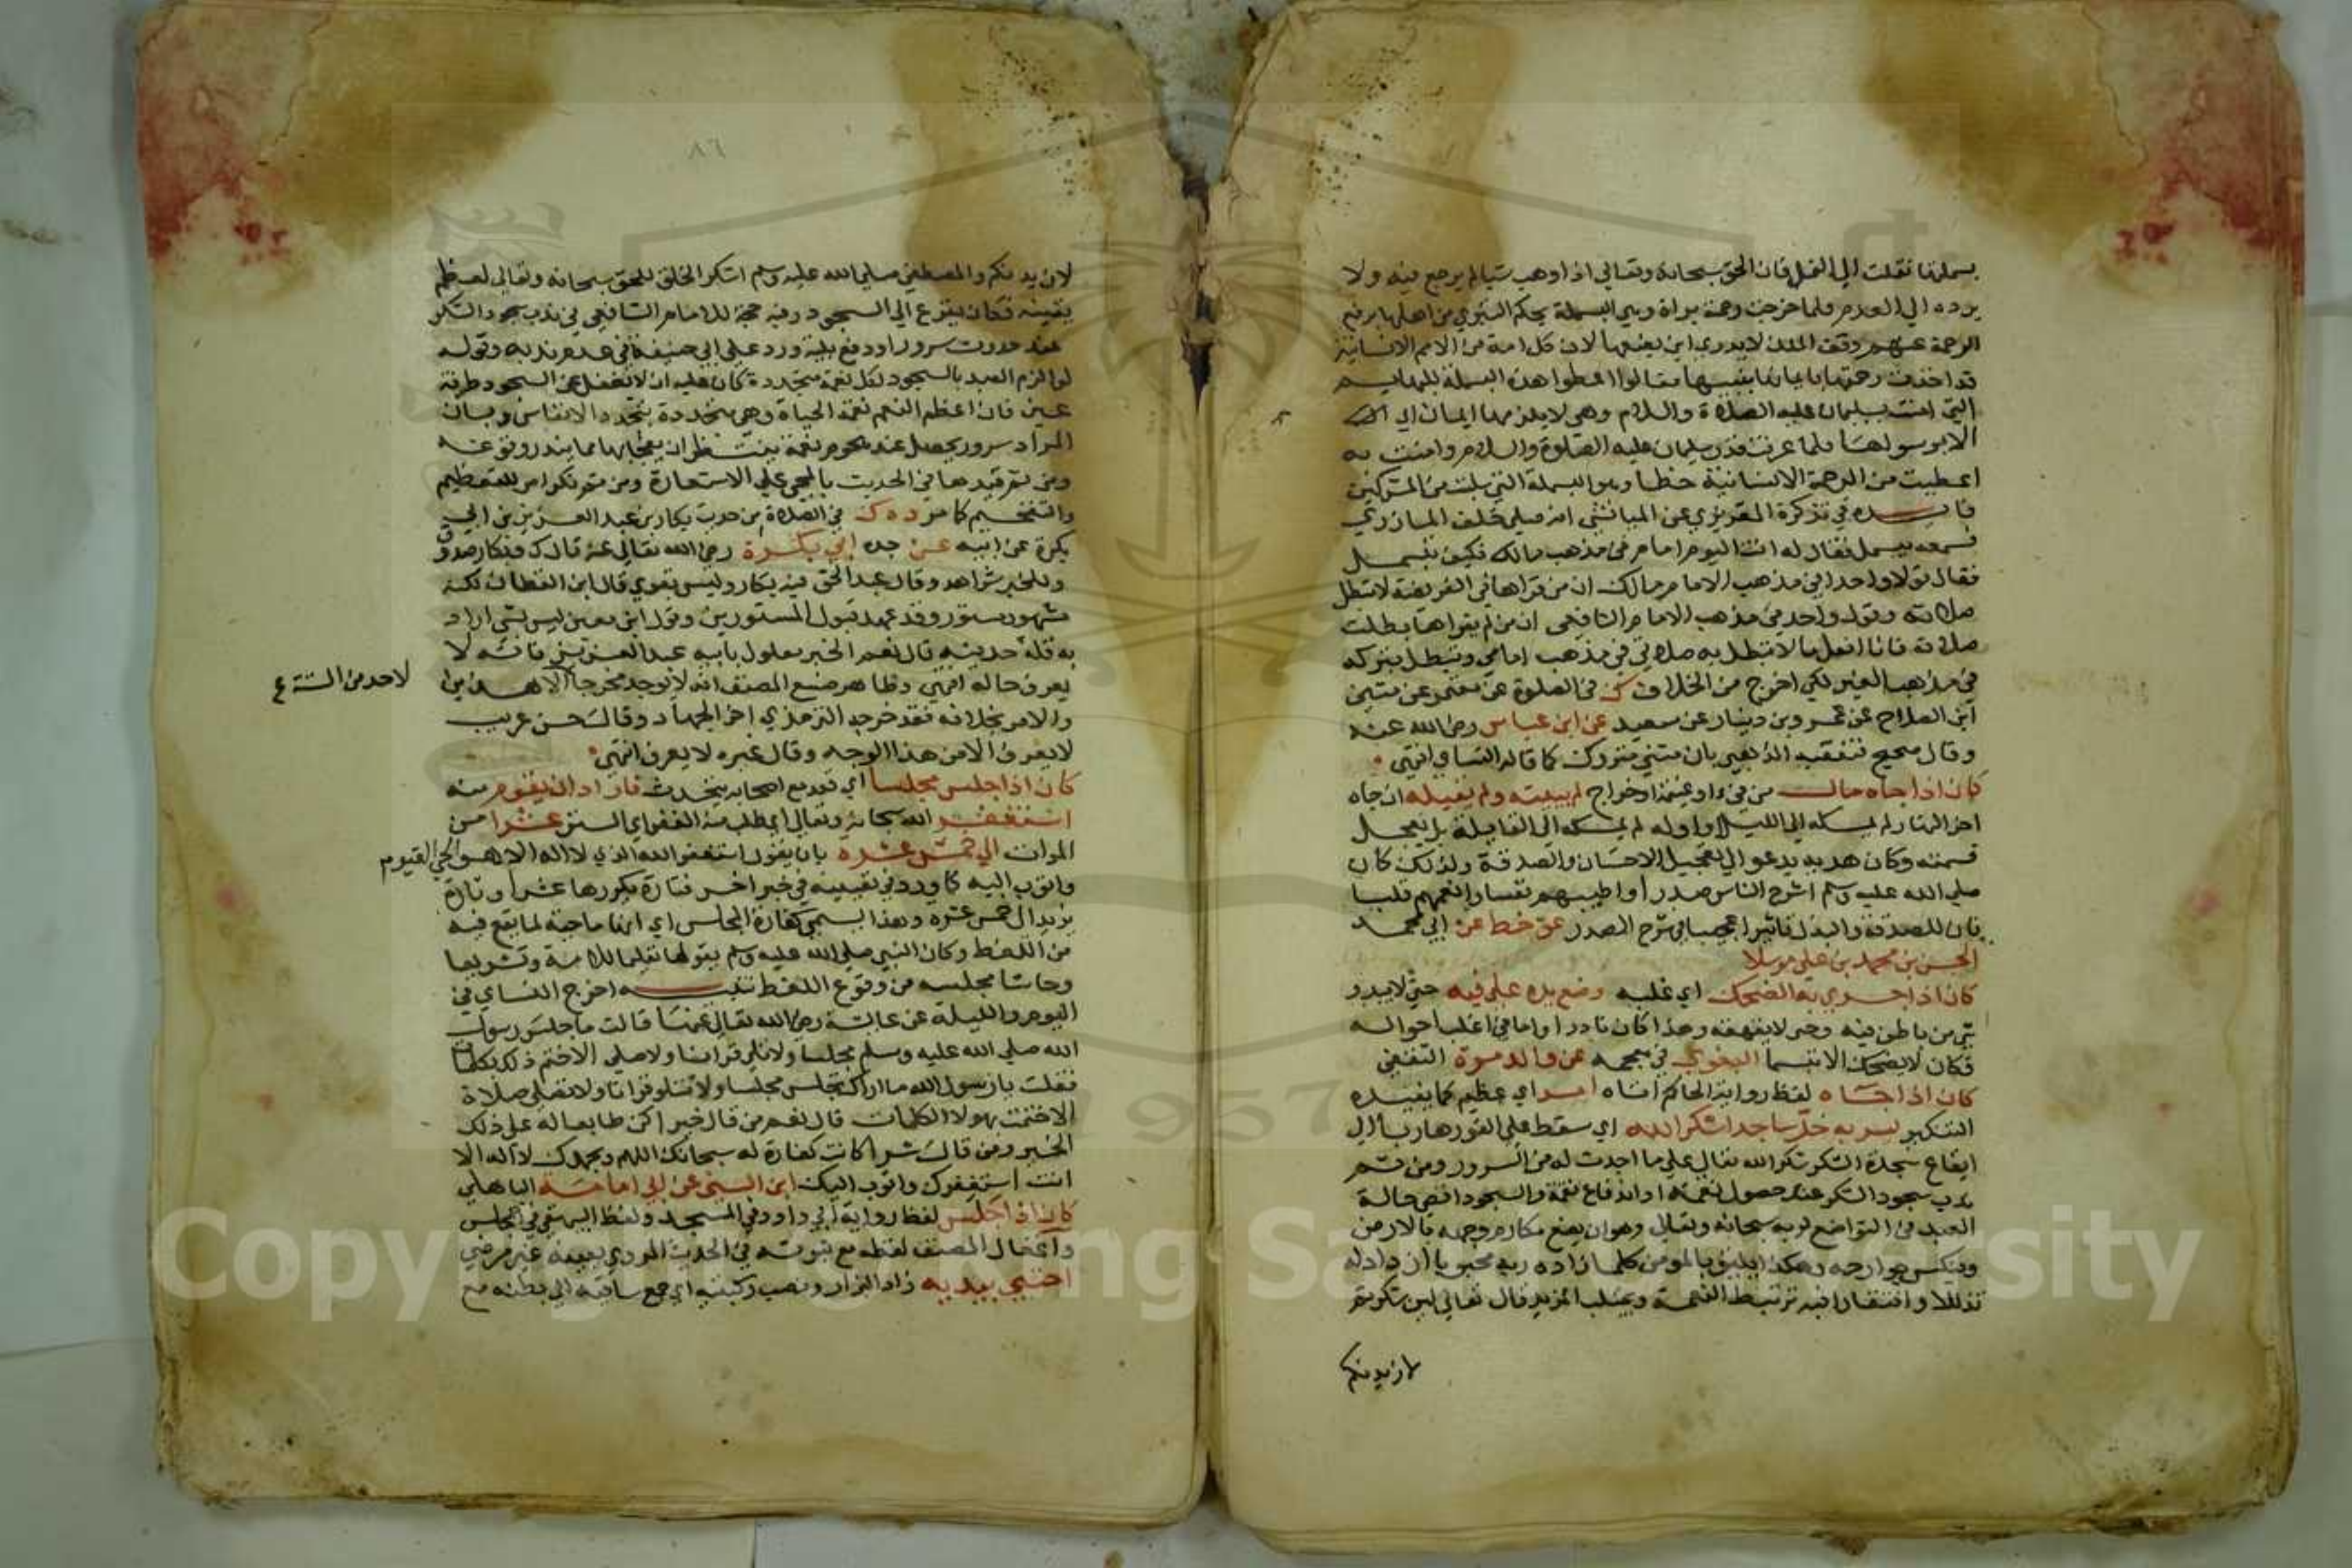 بسملتها نقلت الي النمل فان الحق سبحانه وتعالي اذا وهب شيا لم يرجع فيه ولا
يرده الي العدم فلما خرجت رحمة براة وهي البسملة بحكم التبري من اهلها برفع
الرحمة عنهم وقف الملك لا يدري اين يضعها لان كل امة من الامم الانسانية
قد اخذت رحمتها بايمانها بنبيها فقالوا اعطوا هذه البسملة للبهايم
التي امنت بسليمان عليه الصلاة والسلام وهي لا يلزمها ايمان الا
الا برسولها فلما عرفت قدر سليمان عليه الصلوة والسلام وامنت به
اعطيت من الرحمة الانسانية حظا وهو البسملة التي سلبت من المشركين
فايده في تذكرة المقريزي عن الميانشي انه صلي خلف المازري
فسمعه يبسمل فقال له انت اليوم امام في مذهب مالك فكيف تبسمل
فقال قولا واحدا في مذهب الامام مالك ان من قراها في الفريضة لا تبطل
صلاته وقولا واحد في مذهب الامام الشافعي ان من لم يقراها بطلت
صلاته فانا افعل ما لا تبطل به صلاتي في مذهب امامي وتبطل بتركه
في مذهب الغير لكي اخرج من الخلاف ك في الصلوة عن معتمر عن مثني
ابن الصلاح عن عمرو بن دينار عن سعيد عن ابن عباس رضي الله عنه
وقال صحيح فتعقبه الذهبي بان مثني متروك كما قاله النساي انتهي
كان اذا جاه مال من فيء او غنيمة او خراج لم يبيته ولم يقيله ان جاه
اخر النهار لم يمسكه الي الليل او اوله لم يمسكه الي القايلة بل يعجل
قسمته وكان هديه يدعو الي تعجيل الاحسان والصدقة ولذلك كان
صلي الله عليه وسلم اشرح الناس صدرا واطيبهم نفسا وانعمهم قلبا
فان للصدقة والبذل تاثيرا عجيبا في شرح الصدر هق خط عن ابي محمد
الحسن بن محمد بن علي مرسلا
كان اذا جري به الضحك اي غلبه وضع يده علي فيه حتي لا يبدو
شي من باطن فيه وحتي لا يقهقه وهذا كان نادرا واما في اغلب احواله
فكان لا يضحك الا تبسما البغوي في معجمه عن والد مرة الثقفي
كان اذا جاه لفظ رواية الحاكم اتاه امر اي عظيم كما يفيده
التنكير يسر به خر ساجدا شكرا لله اي سقط علي الفور هاويا الي
ايقاع سجدة الشكر شكرا لله تعالي علي ما احدث له من السرور ومن ثم
ندب سجود الشكر عند حصول نعمة او اندفاع نقمة والسجود اقصي حالة
العبد في التواضع لربه سبحانه وتعالي وهو ان يضع مكارم وجهه بالارض
وينكس جوارحه وهكذا يليق بالمومن كلما زاده ربه محبوبا ازداد له
تذللا وافتقارا فبه ترتبط النعمة ويجتلب المزيد قال تعالي لين شكرتم
لازيدنكم
٨٦
لازيدنكم والمصطفي صلي الله عليه وسلم اشكر الخلق للحق سبحانه وتعالي لعظم
يقينه فكان يفزع الي السجود وفيه حجة للامام الشافعي في ندب سجود الشكر
عند حدوث سرور او دفع بلية ورد علي ابي حنيفة في عدم ندبه وقوله
لو الزم العبد بالسجود لكل نعمة متجددة كان عليه ان لا يغفل عن السجود طرفة
عين فان اعظم النعم نعمة الحياة وهي متجددة بتجدد الانفاس وبان
المراد سرور يحصل عند هجوم نعمة ينتظر ان يفجا بها مما يندر وقوعه
ومن ثم قيدها في الحديث بالمجي علي الاستعارة ومن ثم نكر امر للتعظيم
والتفخيم كما مر د ه ك في الصلاة من حديث بكار بن عبد العزيز بن ابي
بكرة عن ابيه عن جده ابي بكرة رضي الله تعالي عنه قال ك وبكار صدوق
وللخبر شواهد وقال عبد الحق فيه بكار وليس بقوي قال ابن القطان لكنه
مشهور مستور وقد عهد قبول المستورين وقول ابن معين ليس بشي اراد
به قلة حديثه قال نعم الخبر معلول بابيه عبد العزيز فانه لا
يعرف حاله انتهي وظاهر صنيع المصنف انه لا يوجد مخرجا الا هذين
لاحد من الستة ع
والامر بخلافه فقد خرجه الترمذي اخر الجهاد وقال حسن غريب
لا يعرف الا من هذا الوجه وقال غيره لا يعرف انتهي
كان اذا جلس مجلسا اي قعد مع اصحابه يتحدث فاراد ان يقوم منه
استغفر الله سبحانه وتعالي اي طلب منه الغفر اي الستر عشرا من
المرات الي خمس عشرة بان يقول استغفر الله الذي لا اله الا هو الحي القيوم
واتوب اليه كما ورد في تعيينه في خبر اخر فتارة يكررها عشرا وتارة
يزيد الي خمس عشرة وهذا يسمي كفارة المجلس اي انها ماحية لما يقع فيه
من اللغط وكان النبي صلي الله عليه وسلم يقولها تعليما للامة وتشريعا
وحاشا مجلسه من وقوع اللغط تنبيه اخرج النساي في
اليوم والليلة عن عايشة رضي الله تعالي عنها قالت ما جلس رسول
الله صلي الله عليه وسلم مجلسا ولا تلي قرانا ولا صلي الا ختم ذلك بكلمات
فقلت يا رسول الله ما اراك تجلس مجلسا ولا تتلو قرانا ولا تصلي صلاة
الا ختمت بهولا الكلمات قال نعم من قال خيرا كن طابعا له علي ذلك
الخير ومن قال شرا كانت كفارة له سبحانك اللهم وبحمدك لا اله الا
انت استغفرك واتوب اليك ابن السني عن ابي امامة الباهلي
كان اذا جلس لفظ رواية ابي داود في المسجد ولفظ البيهقي في مجلس
واغفال المصنف لفظه مع ثبوته في الحديث المروي بعينه غير مرضي
احتبي بيديه زاد البزار ونصب ركبتيه اي جمع ساقيه الي بطنه مع
Copyright © King Saud University
1957